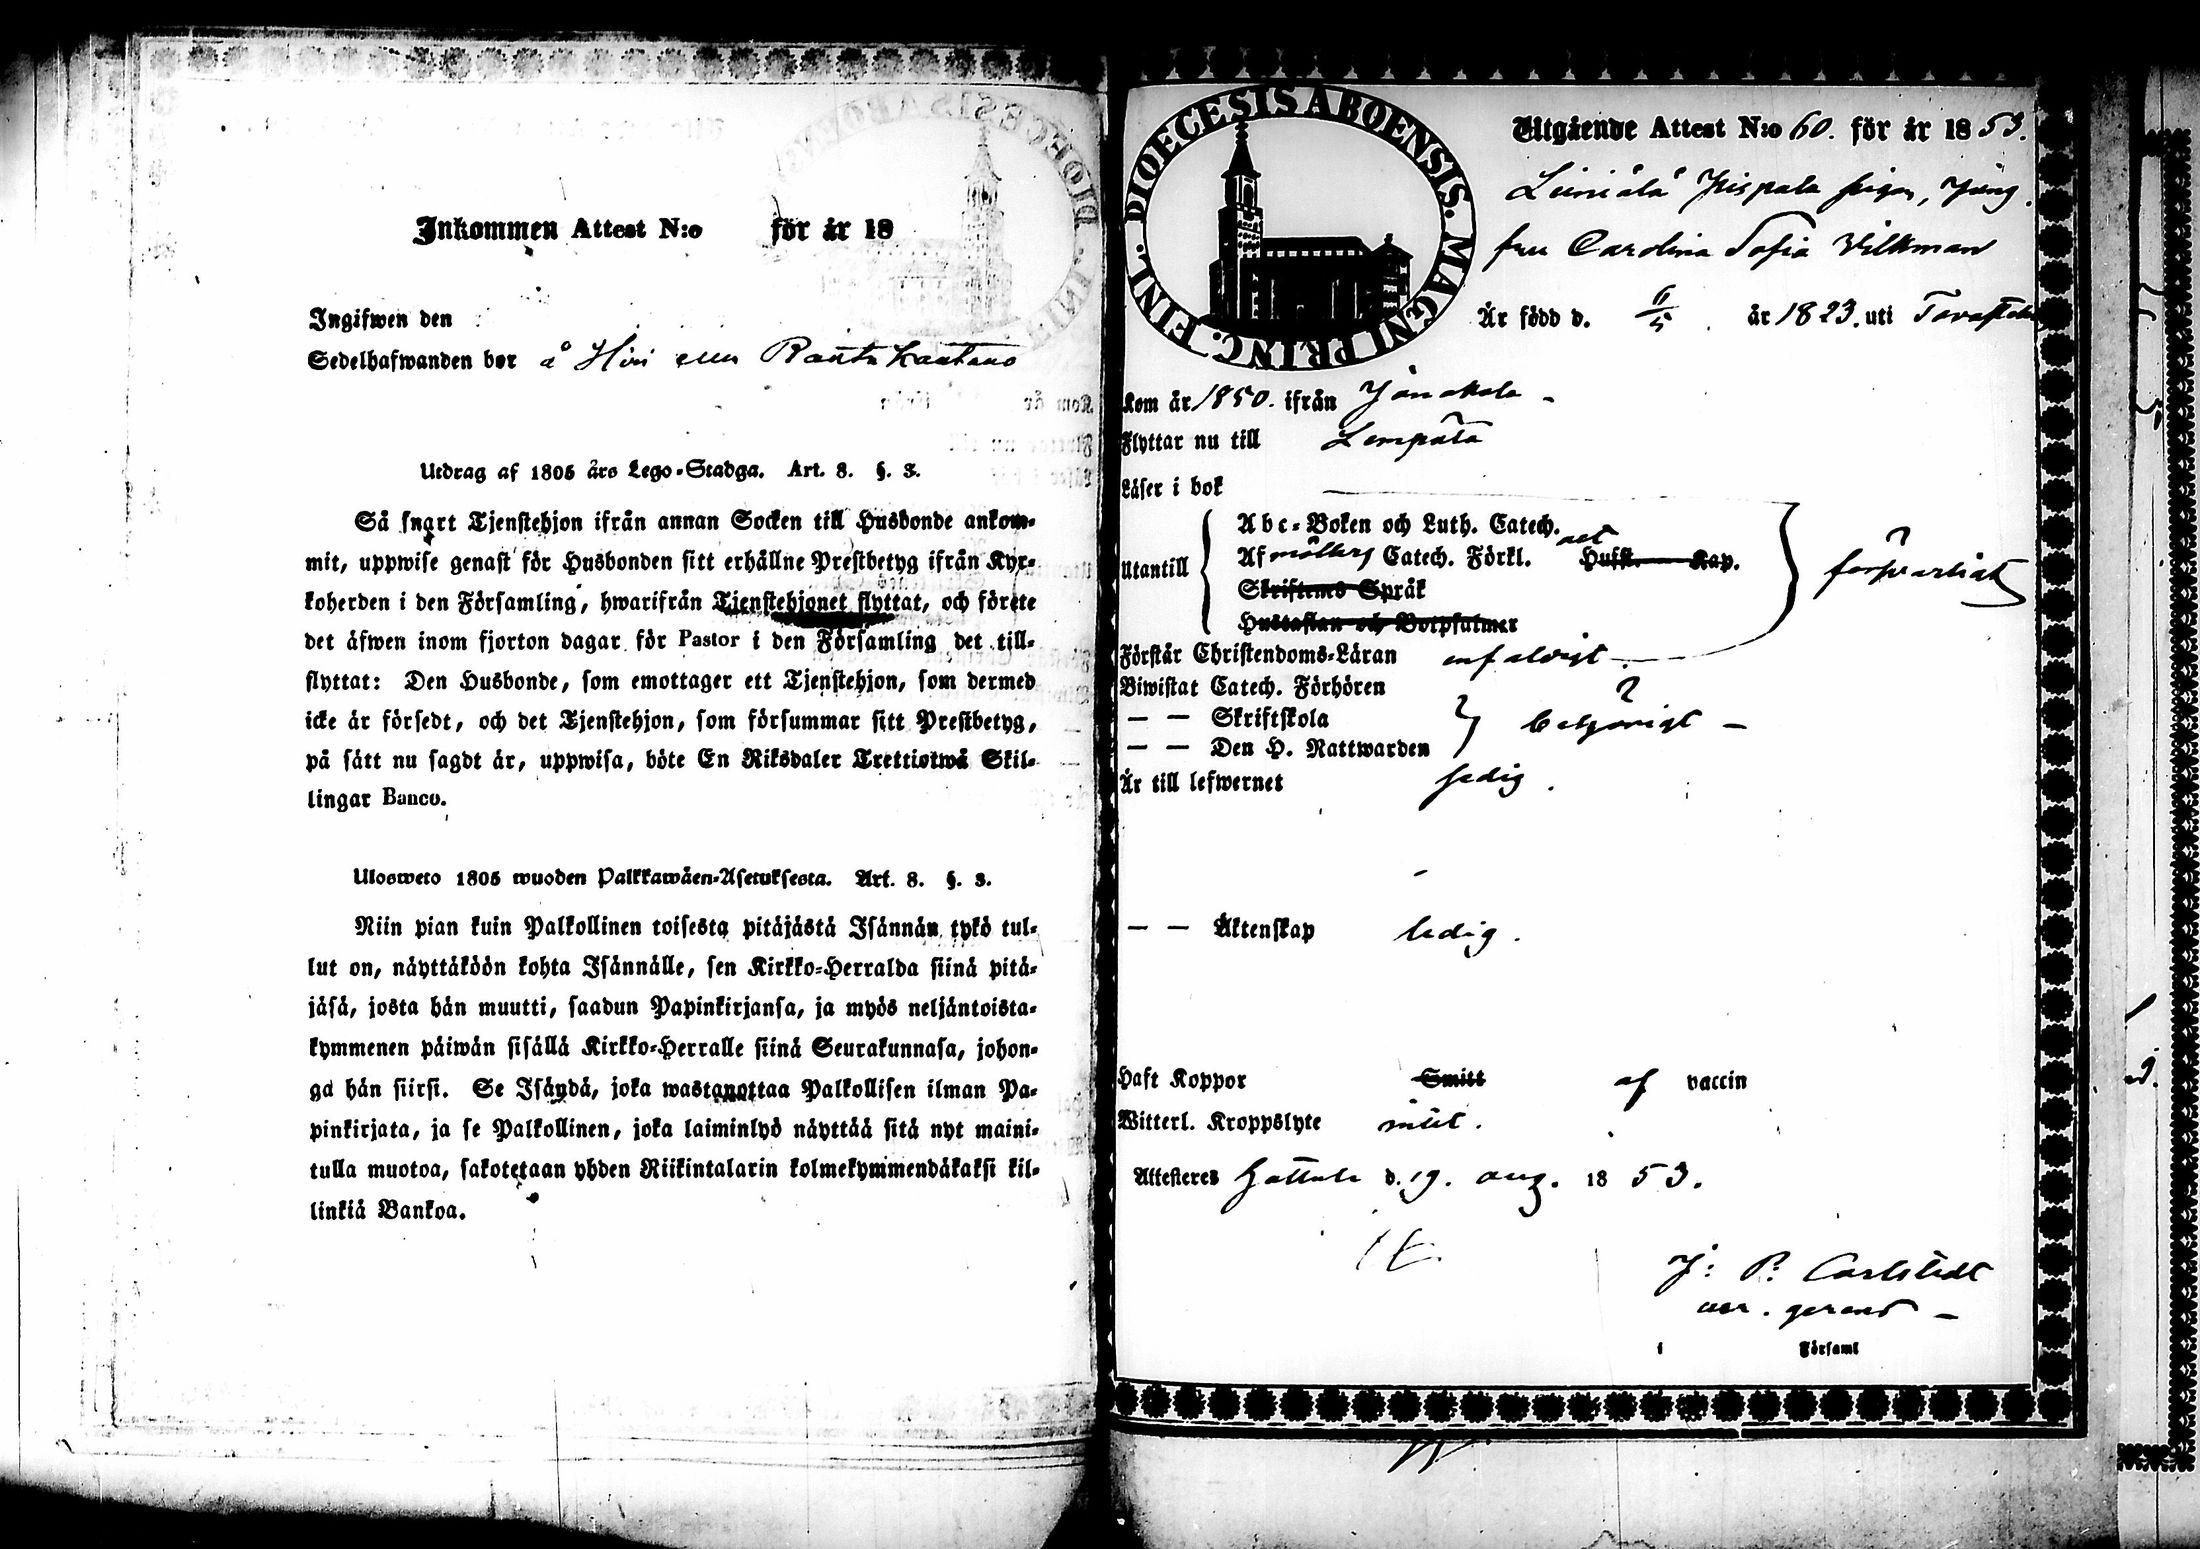 Inkommen Attest N:o för år 18
Ingifwen den
Sedelhafwanden bor å Hiri eller Rautakantano
Utdrag af 1805 års Lego-Stadga. Art. 8. §. 3.
Så snart Tjenstehjon ifrån annan Socken till Husbonde ankom-
mit, uppwise genast för Husbonden sitt erhållne Prestbetyg ifrån Kyr-
koherden i den Församling, hwarifrån Tjenstehjonet flyttat, och förete
det äfwen inom fjorton dagar för Pastor i den Församling det till-
flyttat: Den Husbonde, som emottager ett Tjenstehjon, som dermed
icke är försedt, och det Tjenstehjon, som försummar sitt Prestbetyg,
på sätt nu sagdt är, uppwisa, böte En Riksdaler Trettiotwå Skil-
lingar Banco.
Ulosweto 1805 wuoden Palkkawäen-Asetuksesta. Art. 8. §. 3.
Niin pian kuin Palkollinen toisesta pitäjästä Isännän tykö tul-
lut on, näyttäköön kohta Isännälle, sen Kirkko-Herralda siinä pitä-
jäsä, josta hän muutti, saadun Papinkirjansa, ja myös neljäntoista-
kymmenen päiwän sisällä Kirkko-Herralle siinä Seurakunnasa, johon-
ga hän siirsi. Se Isändä, joka wastanottaa Palkollisen ilman Pa-
pinkirjata, ja se Palkollinen, joka laiminlyö näyttää sitä nyt maini-
tulla muotoa, sakotetaan yhden Riikintalarin kolmekymmendäkaksi kil-
linkiä Bankoa.
DIOECESIS ABOENSIS. MAGNI PRINC. FINL.
Utgående Attest N:o 60. för år 1853.
pigan, Jung
fru Carolina Sofia Vilkman
Är född d. 6/5 år 1823. uti Tavastehus
Kom år 1850. ifrån Janakala
Flyttar nu till Lempälä
Läser i bok
Utantill
Abc-Boken och Luth. Catech.
Af Möllers Catech. Förkl. Husst. Kap.
Skriftens Språk
Hustaflan och Botpsalmer
försvarligt
Förstår Christendoms-Läran enfaldigt
Biwistat Catech. Förhören
— — Skriftskola
— — Den H. Nattwarden
behörigt
Är till lefwernet sedig.
— — Äktenskap ledig.
Haft Koppor Smitt af vaccin
Witterl. Kroppslyte intet.
Attesteres Hattula d. 19. aug. 1853.
J: P: Carlstedt
i Församl